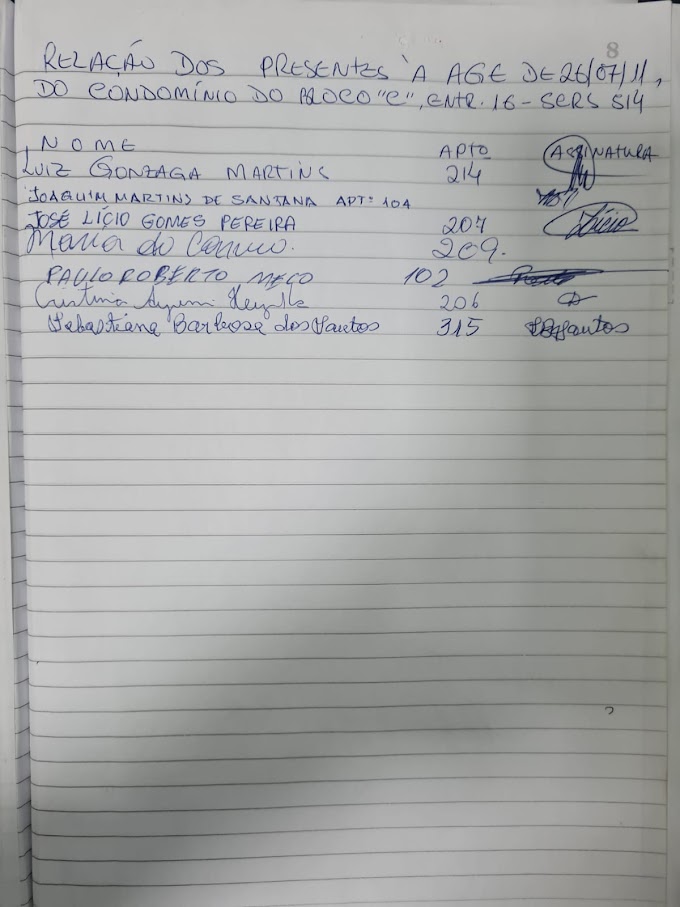 8
RELAÇÃO DOS PRESENTES À AGE DE 26/07/11,
DO CONDOMÍNIO DO BLOCO "C", ENTR. 16 - SCRS 514
NOME APTO ASSINATURA
LUIZ GONZAGA MARTINS 214
JOAQUIM MARTINS DE SANTANA APTº 104
JOSÉ LÍCIO GOMES PEREIRA 207 Lício
Maria do Carmo. 209.
PAULO ROBERTO 102
Cristina 206
Sebastiana Barbosa dos Santos 315 SBSantos